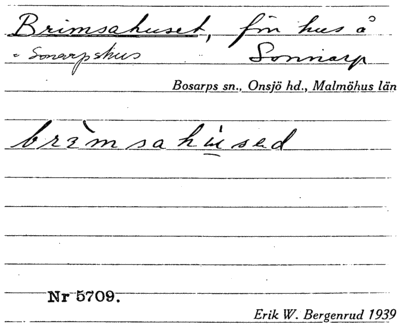 Brimsahuset, fm hus å
= Sonarpshus Sonnarp
Bosarps sn., Onsjö hd., Malmöhus län
brìmsahúsed
Nr 5709.
Erik W. Bergenrud 1939